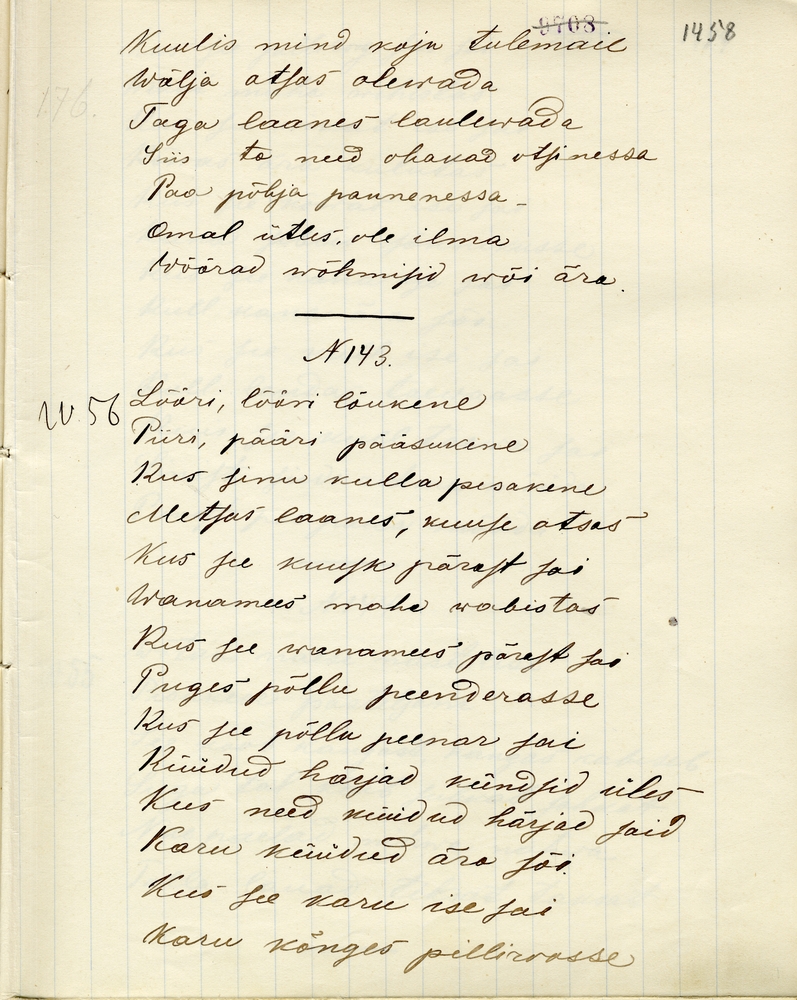 9708 1458
Kuulis mind koju tulemaie
Wälja otsas olewada
176.
Taga laanes laulewada
Siis to need ohakad otsinessa
Paa põhja pannenessa
Omal ütles, ole ilma
Wöörad wõhmisid wõi ära.
N 143.
IV. 56 Lõõri, lõõri lõukene
Piiri, pääri pääsukene
Kus sinu kulla pesakene
Metsas laanes, kuuse otsas
Kus see kuusk pärast sai
Wanamees maha wabistas
Kus see wanamees pärast sai
Puges põllu peenderasse
Kus see põllu peenar sai
Küüdud härjad kündsid üles
Kus need küüdud härjad said
Karu küüdud ära sõi.
Kus see karu ise sai
Karu kõnges pilliroosse